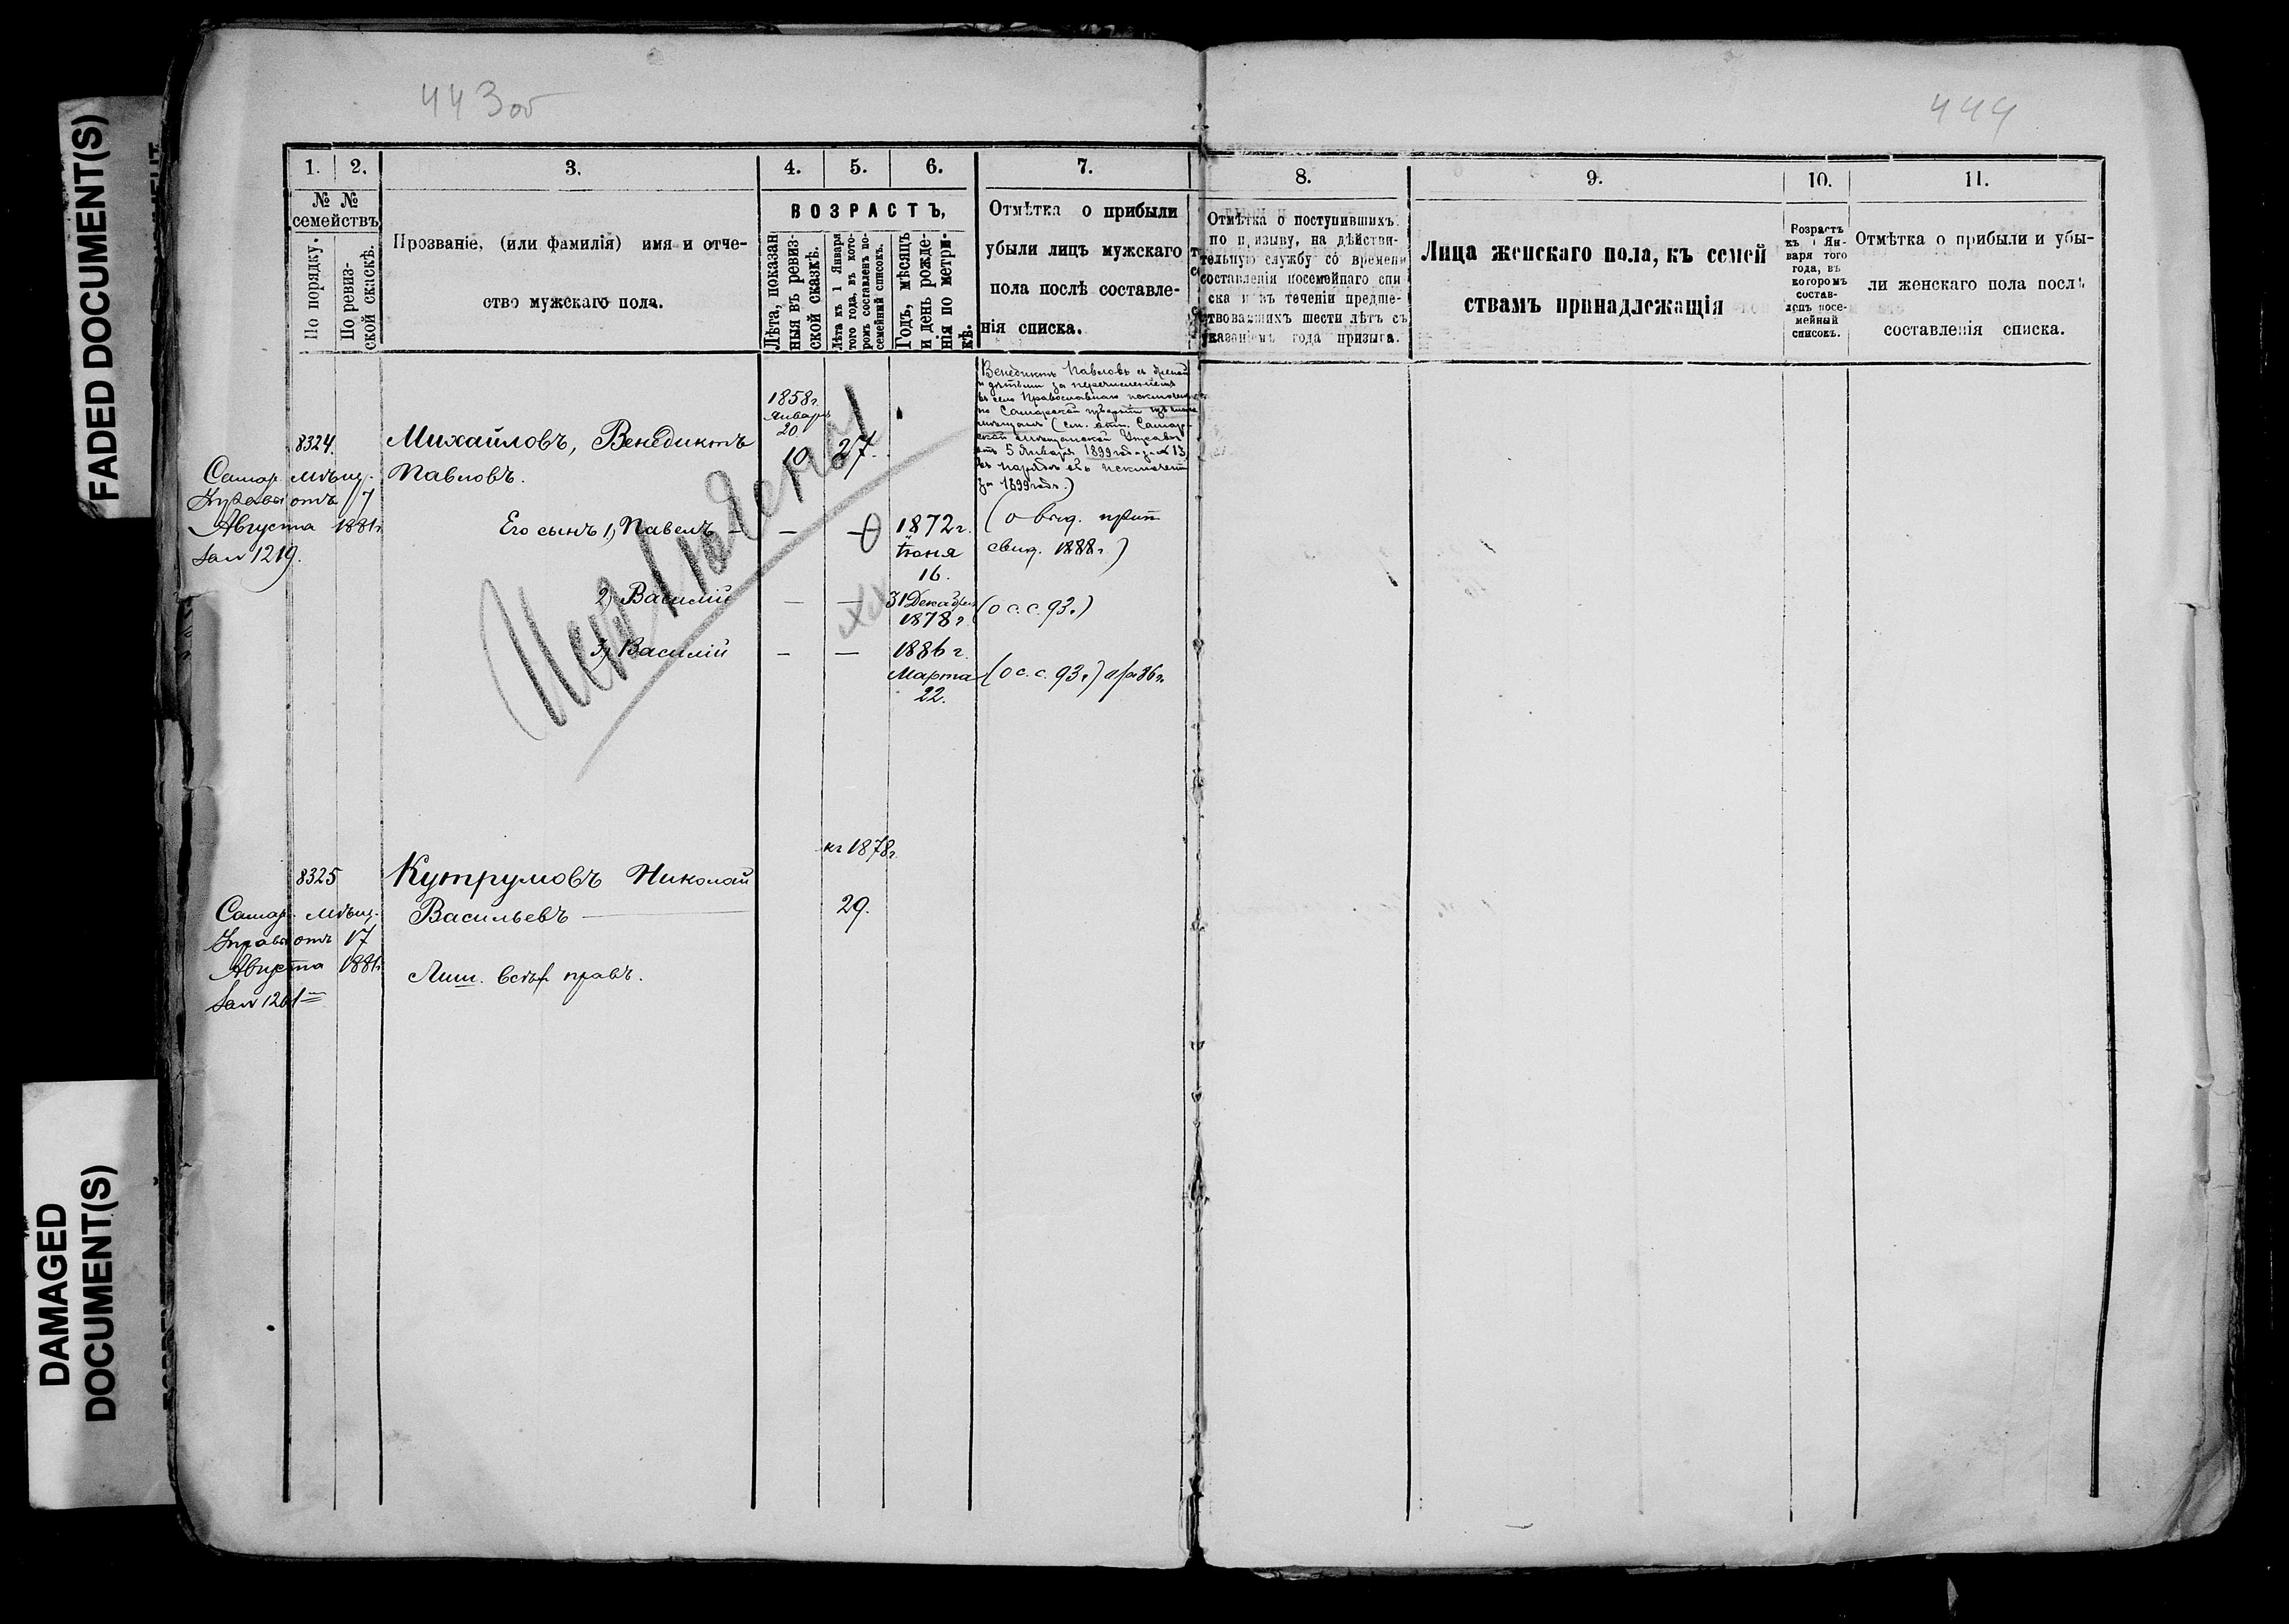 443 об
444
FADED DOCUMENT(S)
DAMAGED
DOCUMENT(S)
1. 2. 3. 4. 5. 6. 7.
№ №
семействъ
По порядку.
По ревиз-
ской сказкѣ.
Прозваніе, (или фамилія) имя и отче-
ство мужскаго пола.
ВОЗРАСТЪ,
Лѣта, показан
ныя въ ревиз-
ской сказкѣ.
Лѣта къ 1 Января
того года, въ кото-
ромъ составленъ по-
семейный списокъ.
Годъ, мѣсяцъ
и день рожде-
нія по метри-
кѣ.
Отмѣтка о прибыли
убыли лицъ мужскаго
пола послѣ составле-
нія списка.
8. 9. 10. 11.
Отмѣтка о поступившихъ
по призыву, на дѣйстви-
тельную службу со времени
составленія посемейнаго спи
ска и въ теченіи предше-
ствовавшихъ шести лѣтъ съ
указаніемъ года призыва.
Лица женскаго пола, къ семей
ствамъ принадлежащія
Возрастъ
къ 1 Ян-
варя того
года, въ
которомъ
состав-
ленъ посе-
мейный
списокъ.
Отмѣтка о прибыли и убы-
ли женскаго пола послѣ
составленія списка.
8324.
Самар. Мѣщ.
Управы отъ 17
Августа 1881г
за № 1219.
Михайловъ, Венедиктъ
Павловъ.
1858г.
Января
20.
10
27.
Венедиктъ Павловъ съ женой
и дѣтьми за перечисленіемъ
въ село Православное
по Самарской губерніи
(см. отн. Самар-
ской Мѣщанской Управы
отъ 5 Января 1899 года за № 13
за 1899 годъ.)
Его сынъ 1) Павелъ — — —
1872 г.
Іюня
16.
(о выд. прип
свид. 1888 г.)
2) Василій — —
31 Декабря
1878 г.
(о с. с. 93 г.)
3) Василій — —
1886 г.
Марта
22.
(о с. с. 93 г.)
Исключены
8325
Самар. Мѣщ.
Управы отъ 17
Августа 1881г
за № 1261
Кутрумовъ Николай
Васильевъ
къ 1878г.
29.
Лиш. всѣх правъ.